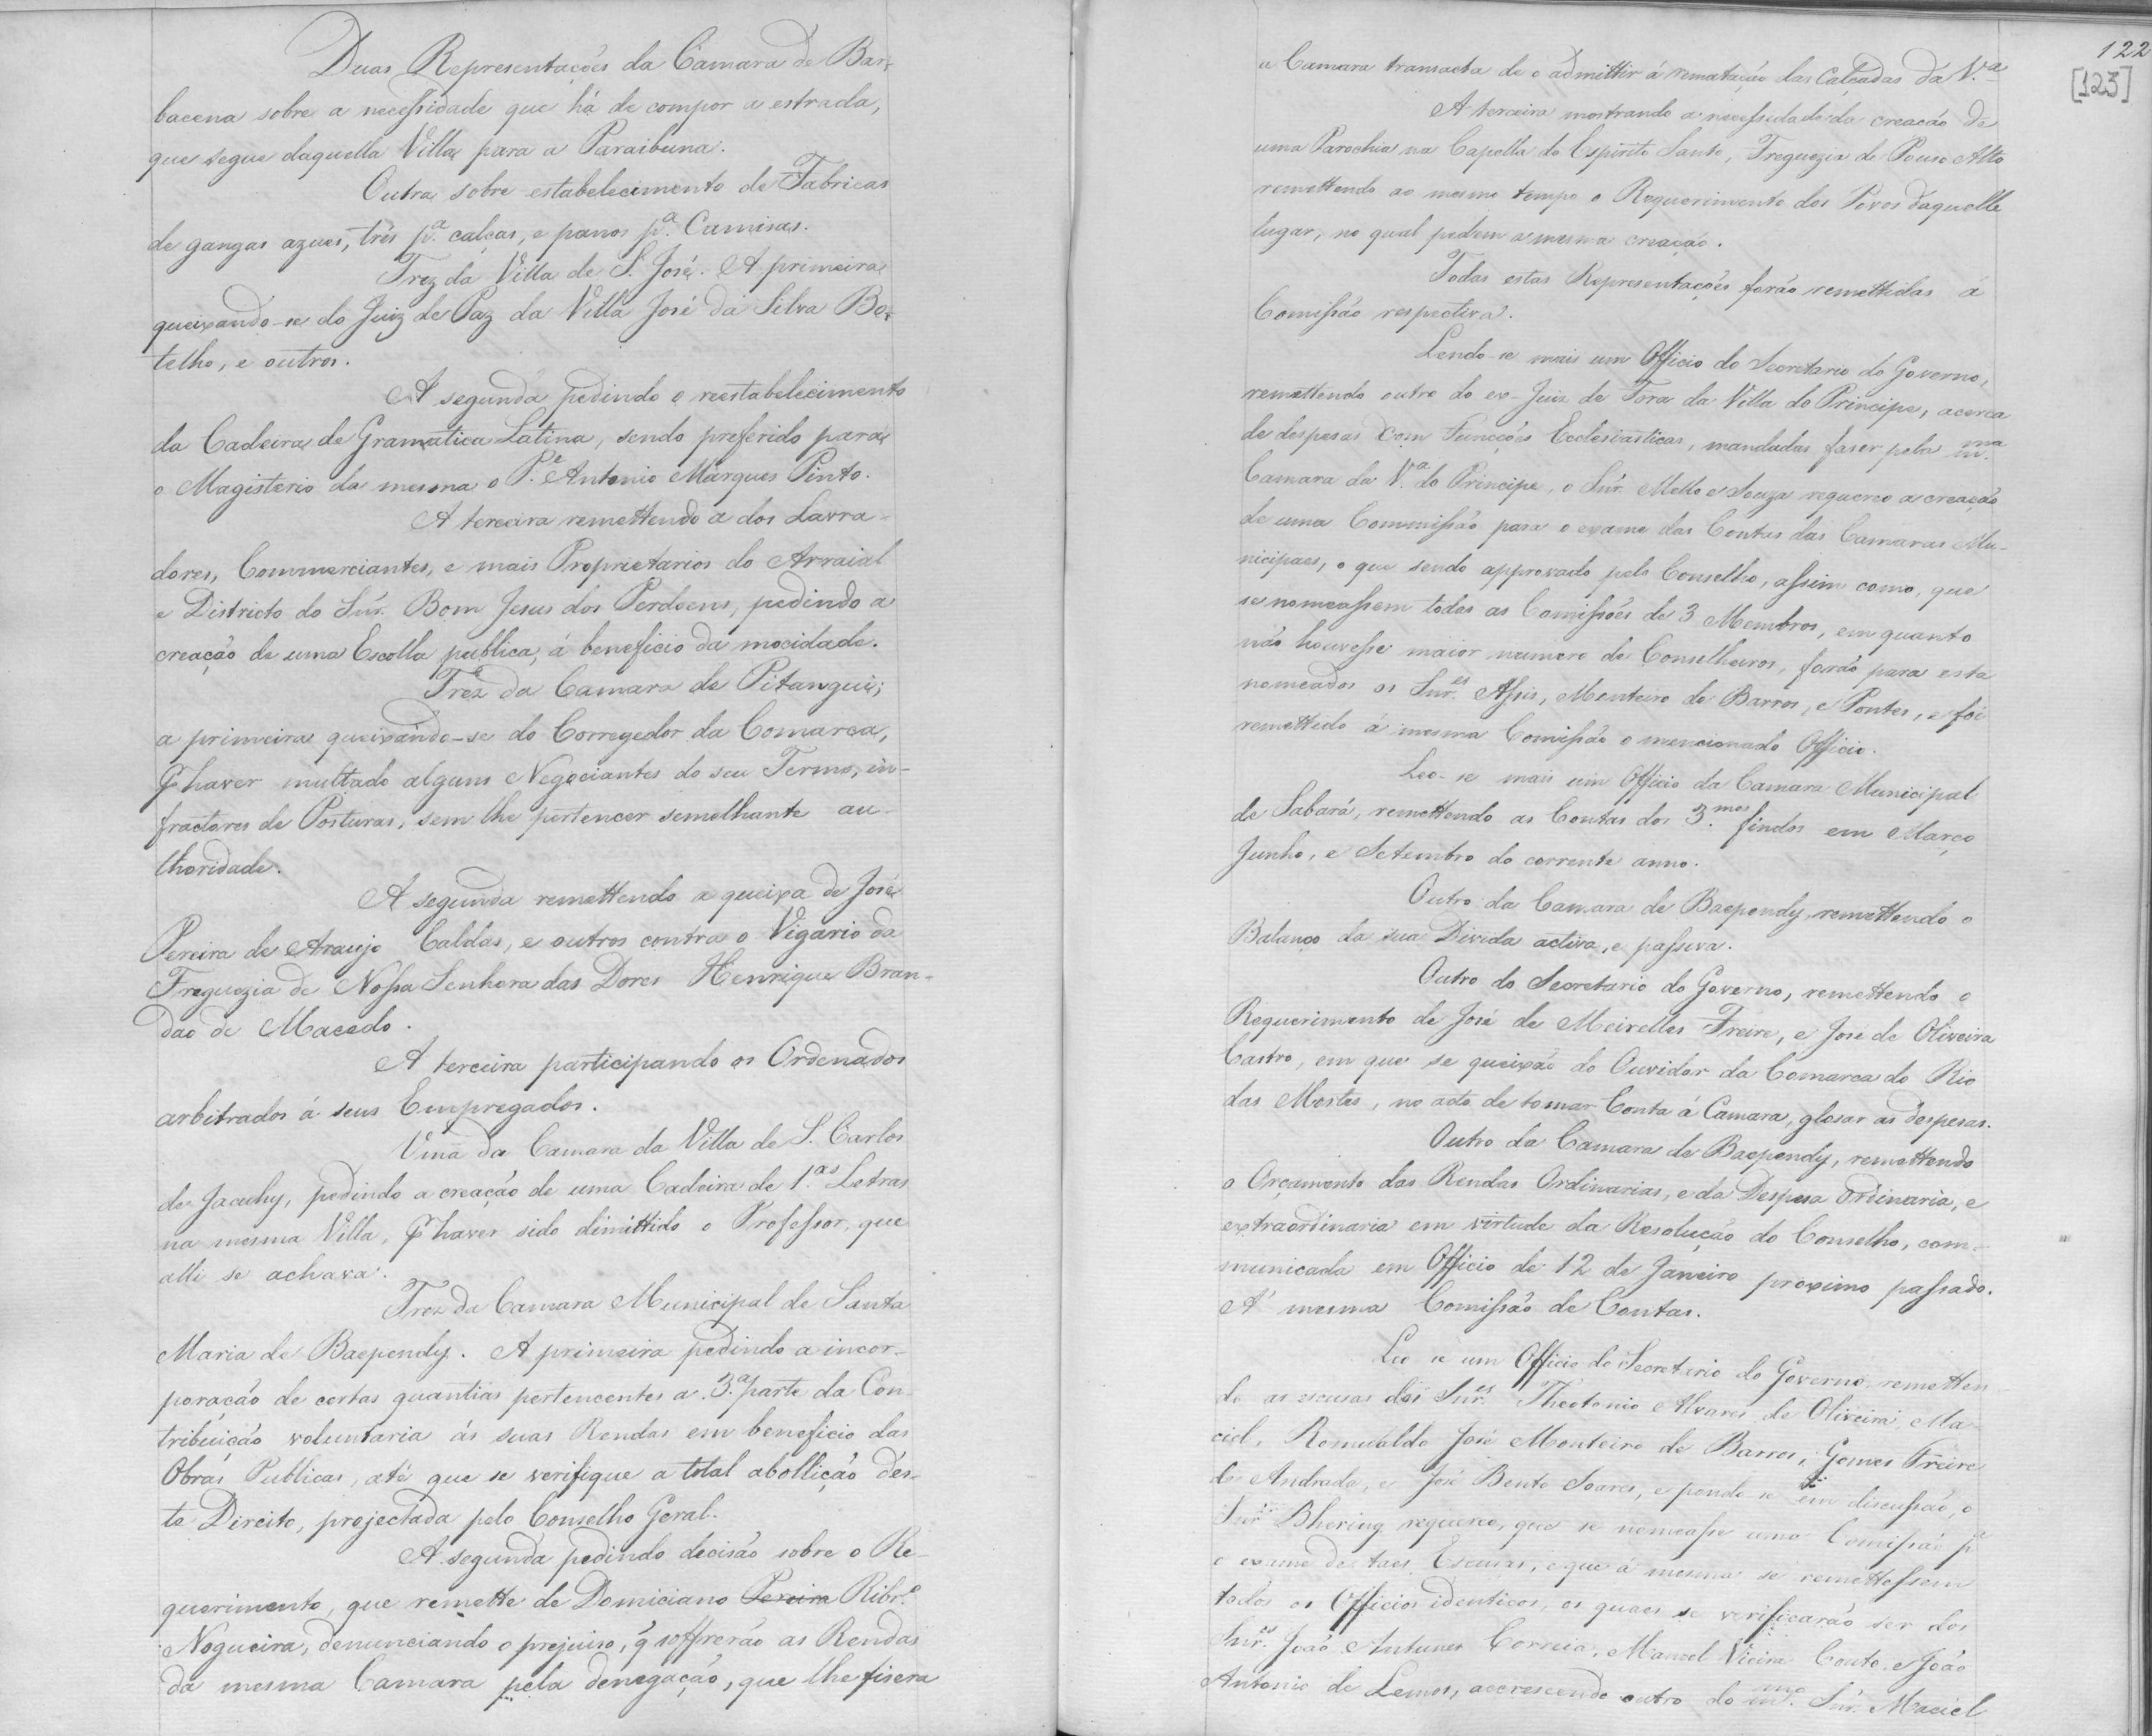 Duas Representações da Camara de Bar-
bacena sobre a necessidade que há de compor a estrada,
que segue daquella Villa para a Paraibuna.
Outra sobre estabelecimento de Fabricas
de gangas azues, três p.ª calças, e panos p.ª Camisas.
Trez da Villa de S. José. A primeira
queixando-se do Juiz de Paz da Villa José da Silva Bo-
telho, e outros.
A segunda pedindo o reestabelecimento
da Cadeira de Gramatica Latina, sendo preferido para
o Magisterio da mesma o P.e Antonio Marques Pinto.
A terceira remettendo a dos Lavra-
dores, Commerciantes, e mais Proprietarios do Arraial
e Districto do Snr. Bom Jesus dos Perdoens, pedindo a
creação de uma Escolla publica, á beneficio da mocidade.
Trez da Camara de Pitangui;
a primeira queixando-se do Corregedor da Comarca,
p haver multado alguns Negociantes do seu Termo, in-
fractores de Posturas, sem lhe pertencer semelhante au-
thoridade.
A segunda remettendo a queixa de José
Pereira de Araujo Caldas, e outros contra o Vigario da
Freguezia de Nossa Senhora das Dores Henrique Bran-
dao de Macedo.
A terceira participando os Ordenados
arbitrados á seus Empregados.
Uma da Camara da Villa de S. Carlos
de Jacuhy, pedindo a creação de uma Cadeira de 1.as Letras
na mesma Villa, p haver sido dimittido o Professor, que
alli se achava.
Trez da Camara Municipal de Santa
Maria de Baependy. A primeira pedindo a incor-
poração de certas quantias pertencentes a 3.ª parte da Con-
tribuição voluntaria ás suas Rendas em beneficio das
Obras Publicas, até que se verifique a total abollição des-
te Direito, projectada pelo Conselho Geral.
A segunda pedindo decisão sobre o Re-
querimento, que remette de Domiciano Pereira Ribr.o
Nogueira, denunciando o prejuiso, q soffrerão as Rendas
da mesma Camara pela denegação, que lhe fisera
122
[123]
a Camara transacta de o admittir á rematação das Calçadas da V.ª
A terceira mostrando a necessidade da creacão de
uma Parochia na Capella do Espirito Santo, Freguezia de Pouso Alto
remettendo ao mesmo tempo o Requerimento dos Povos daquelle
lugar, no qual pedem a mesma creação.
Todas estas Representações forão remettidas á
Comissão respectiva.
Lendo-se mais um Officio do Secretario do Governo,
remettendo outro do ex-Juiz de Fora da Villa do Principe, acerca
de despesas com Funcções Ecclesiasticas, mandadas faser pela m.ma
Camara da V.ª do Principe, o Snr. Mello e Souza requereo a creação
de uma Commissão para o exame das Contas das Camaras Mu-
nicipaes, o que sendo approvado pelo Conselho, assim como, que
se nomeassem todas as Comissões de 3 Membros, em quanto
não houvesse maior numero de Conselheiros, forão para esta
nomeados os Snr.es Assis, Monteiro de Barros, e Pontes, e foi
remettido á mesma Comissão o mencionado Officio.
Leo-se mais um Officio da Camara Municipal
de Sabará, remettendo as Contas dos 3.mos findos em Março
Junho, e Setembro do corrente anno.
Outro da Camara de Baependy, remettendo o
Balanço da sua Divida activa, e passiva.
Outro do Secretario do Governo, remettendo o
Requerimento de José de Meirelles Freire, e Jose de Oliveira
Castro, em que se queixão do Ouvidor da Comarca do Rio
das Mortes, no acto de tomar Conta á Camara, glosar as despesas.
Outro da Camara de Baependy, remettendo
o Orçamento das Rendas Ordinarias, e da Despesa Ordinaria, e
extraordinaria em virtude da Resolução do Conselho, com-
municada em Officio de 12 de Janeiro proximo passado.
A' mesma Comissão de Contas.
Leo se um Officio do Secretario do Governo, remetten
do as escusas dos Snr.es Theotonio Alvares de Oliveira Ma-
ciel, Romualdo José Monteiro de Barros, Gomes Freire
de Andrada, e José Bento Soares, e pondo se em discussão, o
Snr. Bhering requereo, que se nomeasse uma Comissão p.ª
o exame de taes Escusas, e que á mesma se remettessem
todos os Officios identicos, os quaes se verificarão ser dos
Snr.es João Antunes Correia, Manoel Vieira Couto, e João
Antonio de Lemos, accrescendo outro do m.mo Snr. Maciel